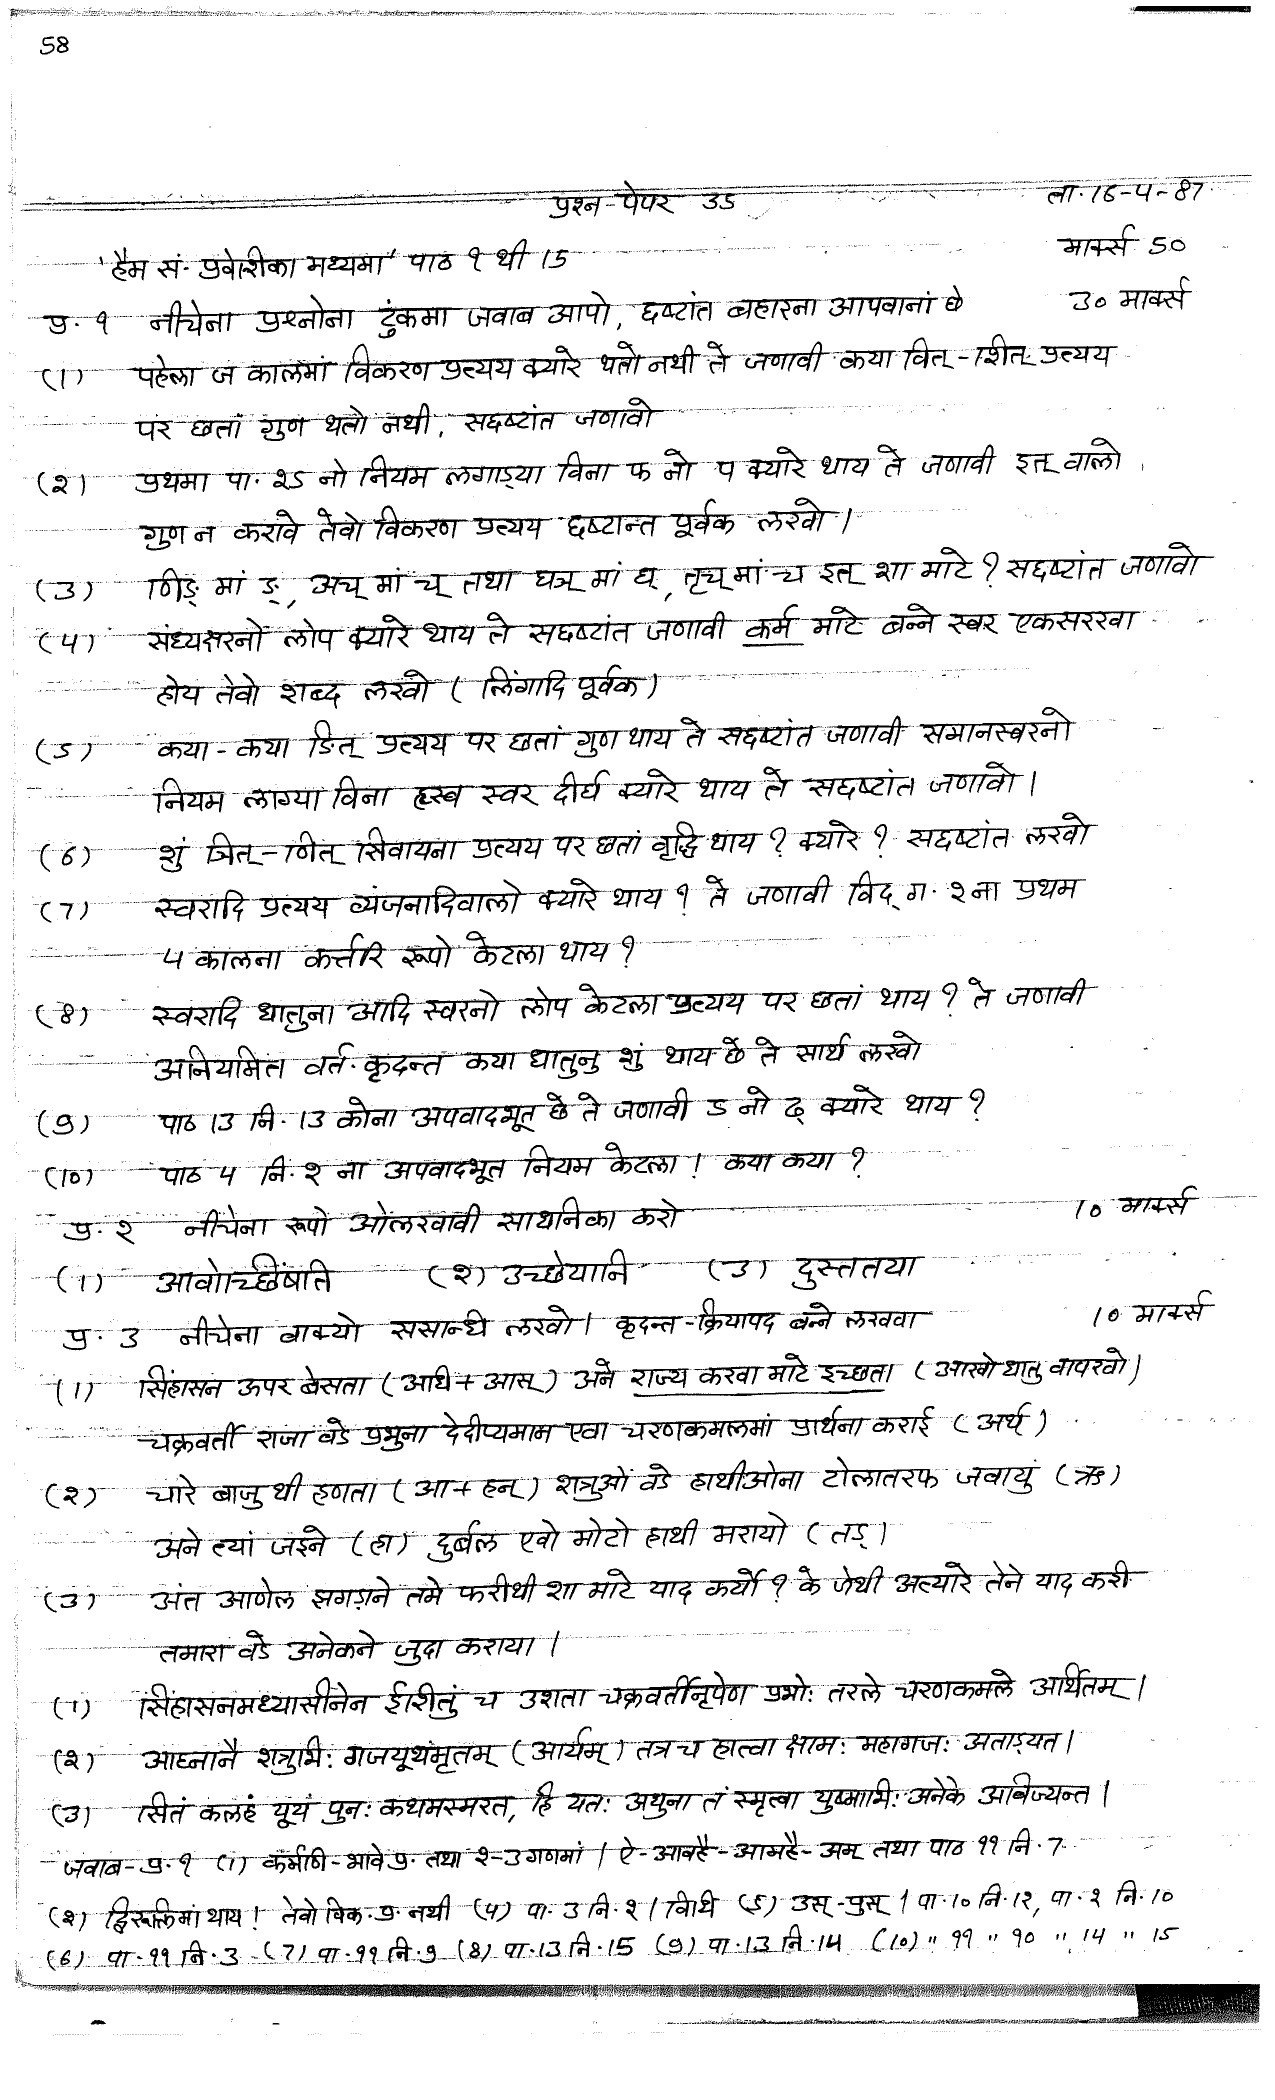 58
प्रश्न-पेपर 35
ता. 16-५-87
'हैम सं- प्रवेशीका मध्यमा' पाठ १ थी 15
मार्क्स 50
प्र. १ नीचेना प्रश्नोना टुंकमा जवाब आपो, द्दष्टांत बहारना आपवानां छे
30 मार्क्स
(1) पहेला ज कालमां विकरण प्रत्यय क्यारे थतो नथी ते जणावी कया वित्-शित् प्रत्यय
पर छतां गुण थतो नथी, सद्दष्टांत जणावो
(२) प्रथमा पा. २5 नो नियम लगाड्या विना फ नो प क्यारे थाय ते जणावी इत् वालो
गुण न करावे तेवो विकरण प्रत्यय द्दष्टान्त पूर्वक लखो।
(3) णिङ् मां ङ्, अच् मां च् तथा घञ् मां घ्, तृच् मां च इत् शा माटे? सद्दष्टांत जणावो
(५) संध्यक्षरनो लोप क्यारे थाय ते सद्दष्टांत जणावी कर्म माटे बन्ने स्वर एकसरखा
होय तेवो शब्द लखो (लिंगादि पूर्वक)
(5) कया-कया ङित् प्रत्यय पर छतां गुण थाय ते सद्दष्टांत जणावी समानस्वरनो
नियम लाग्या विना ह्रस्व स्वर दीर्घ क्यारे थाय ते सद्दष्टांत जणावो।
(6) शुं ञित्-णित् सिवायना प्रत्यय पर छतां वृद्धि थाय? क्यारे? सद्दष्टांत लखो
(7) स्वरादि प्रत्यय व्यंजनादिवालो क्यारे थाय? ते जणावी विद् ग. २ना प्रथम
५ कालना कर्त्तरि रूपो केटला थाय?
(8) स्वरादि धातुना आदि स्वरनो लोप केटला प्रत्यय पर छतां थाय? ते जणावी
अनियमित वर्त. कृदन्त कया धातुनु शुं थाय छे ते सार्थ लखो
(9) पाठ 13 नि. 13 कोना अपवादभूत छे ते जणावी ड नो ढ् क्यारे थाय?
(10) पाठ ५ नि. २ ना अपवादभूत नियम केटला! कया कया?
प्र. २ नीचेना रूपो ओलखावी साधनिका करो
10 मार्क्स
(1) (२) उच्छेयानि (3) दुस्ततया
प्र. 3 नीचेना वाक्यो ससन्धि लखो। कृदन्त-क्रियापद बन्ने लखवा
10 मार्क्स
(1) सिंहासन ऊपर बेसता (अधि+आस्) अने राज्य करवा माटे इच्छता (आखो धातु वापरवो)
चक्रवर्ती राजा वडे प्रभुना देदीप्यमाम एवा चरणकमलमां प्रार्थना कराई (अर्थ)
(२) चारे बाजु थी हणता (आ+हन्) शत्रुओ वडे हाथीओना टोलातरफ जवायुं (ऋ)
अने त्यां जइने (हा) दुर्बल एवो मोटो हाथी मरायो (तड्)
(3) अंत आणेल झगडाने तमे फरीथी शा माटे याद कर्यो? के जेथी अत्यारे तेने याद करी
तमारा वडे अनेकने जुदा कराया।
(1) सिंहासनमध्यासीनेन ईशितुं च उशता चक्रवर्तीनृपेण प्रभोः तरले चरणकमले अर्थितम्।
(२) आघ्नानै शत्रुभिः गजयूथमृतम् (आर्यम्) तत्र च हात्वा क्षामः महागजः अताड्यत।
(3) सितं कलहं यूयं पुनः कथमस्मरत, हि यतः अधुना तं स्मृत्वा युष्माभिः अनेके अविज्यन्त।
जवाब-प्र. १ (1) कर्मणि-भावे प्र. तथा २-3 गणमां। ऐ-आवहै-आमहै-अम् तथा पाठ ११ नि. 7
(२) द्विरुक्तिमां थाय! तेवो विक. प्र. नथी (५) पा. 3 नि. २। विधि (5) उस्-पुस्। पा. 10 नि. 1२, पा. २ नि. 10
(6) पा. ११ नि. 3 (7) पा. ११ नि. 9 (8) पा. 13 नि. 15 (9) पा. 13 नि. 14 (10) " ११ " १0 " 14 " 15